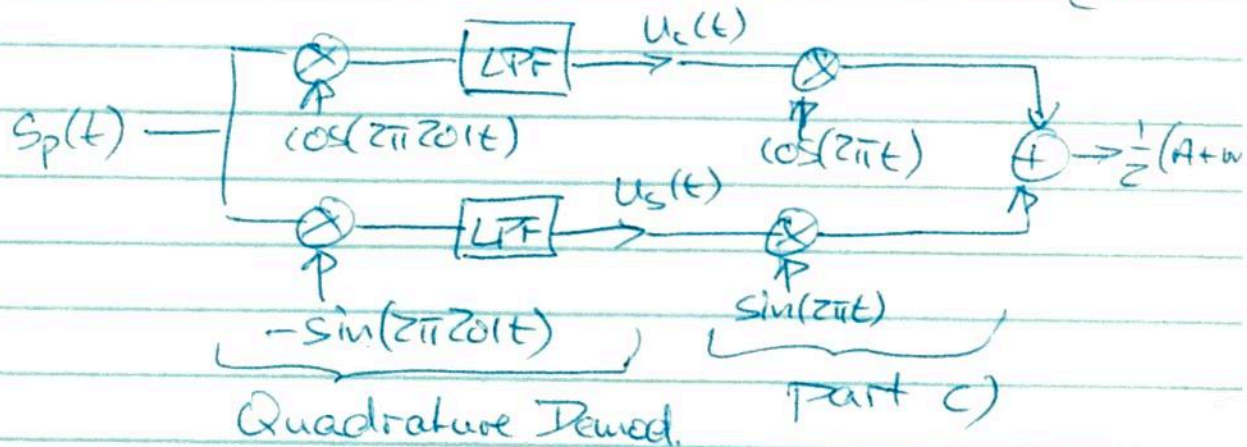 LPF
u_c(t)
S_p(t)
cos(2π201t)
cos(2πt)
+ → 1/2 (A+w
LPF
u_s(t)
-sin(2π201t)
sin(2πt)
Quadrature Demod.
Part c)